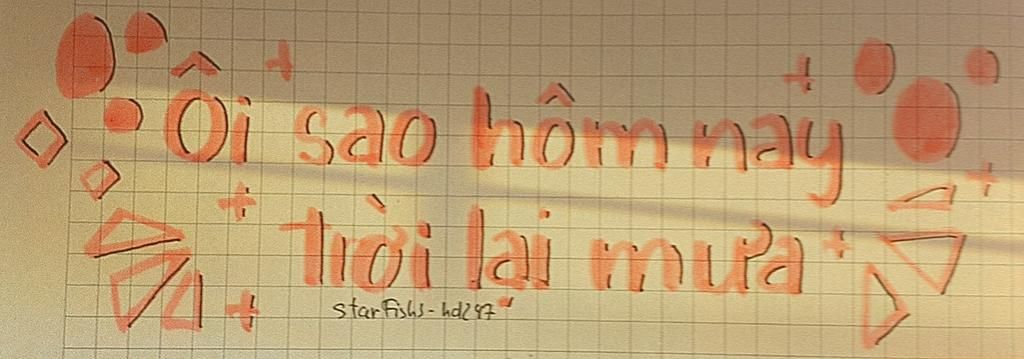 Ôi sao hôm nay
trời lại mưa
starfishs-hd297